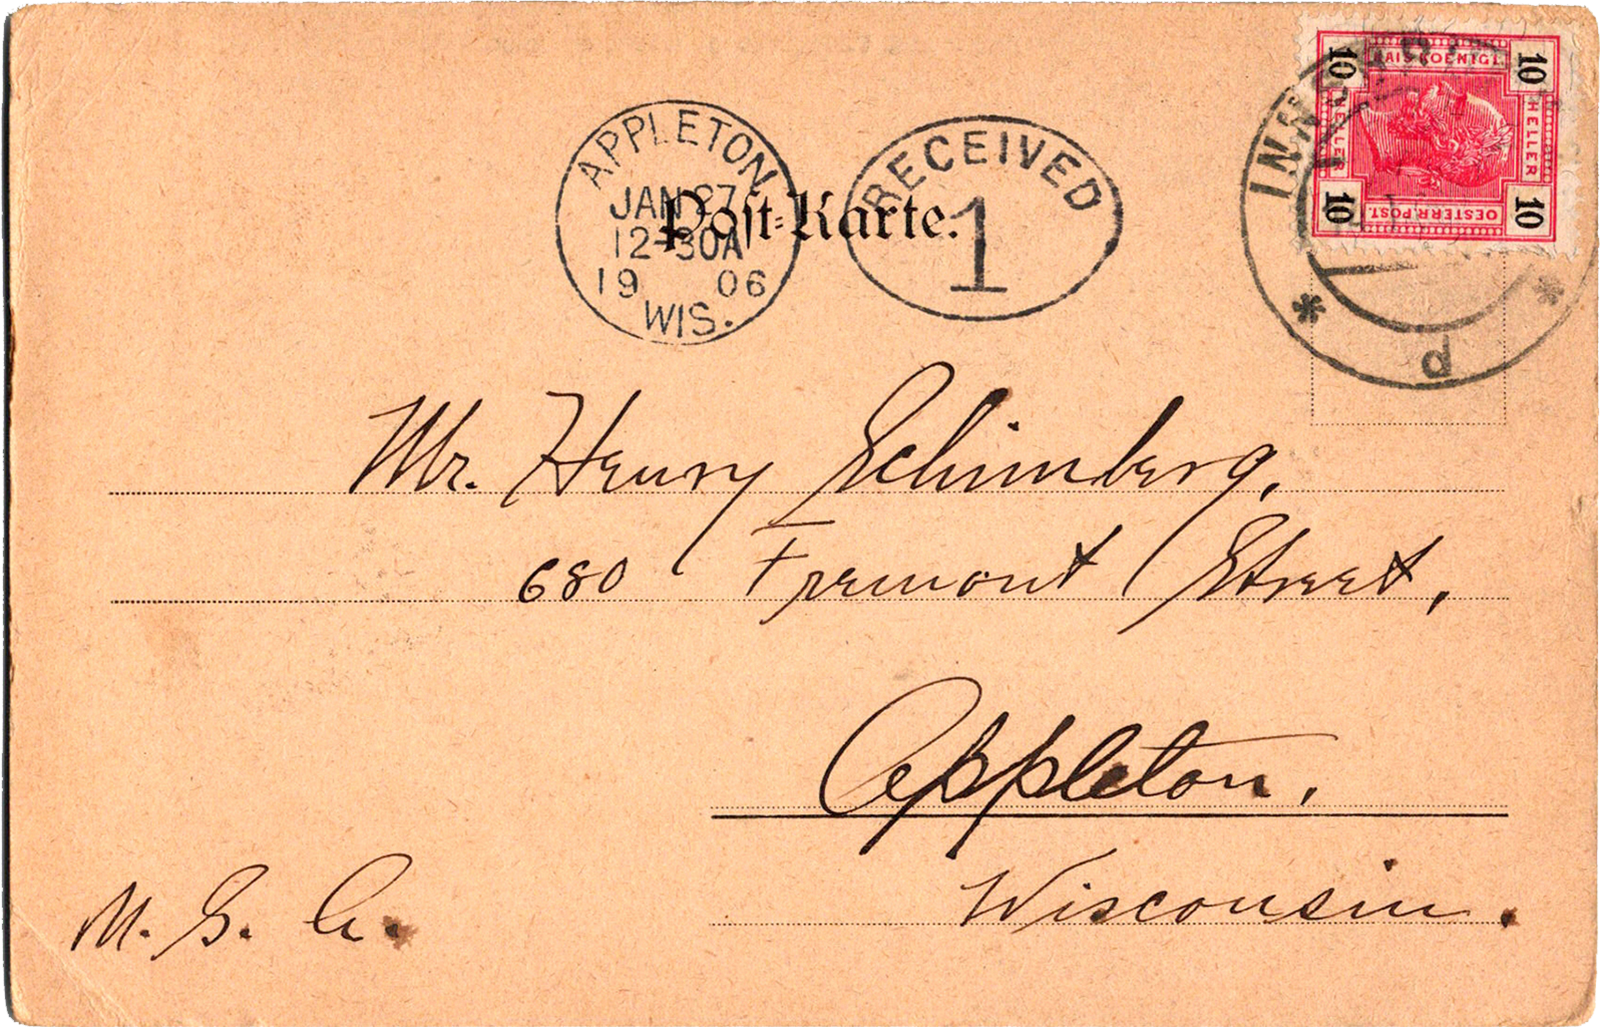 10 KAIS. KOENIGL. 10
HELLER HELLER
10 OESTERR. POST. 10
d
APPLETON
JAN 27
12-30A
19 06
WIS.
RECEIVED
1
Post-Karte.
Mr. Henry Schimberg.
680 Fremont Street,
Appleton.
Wisconsin.